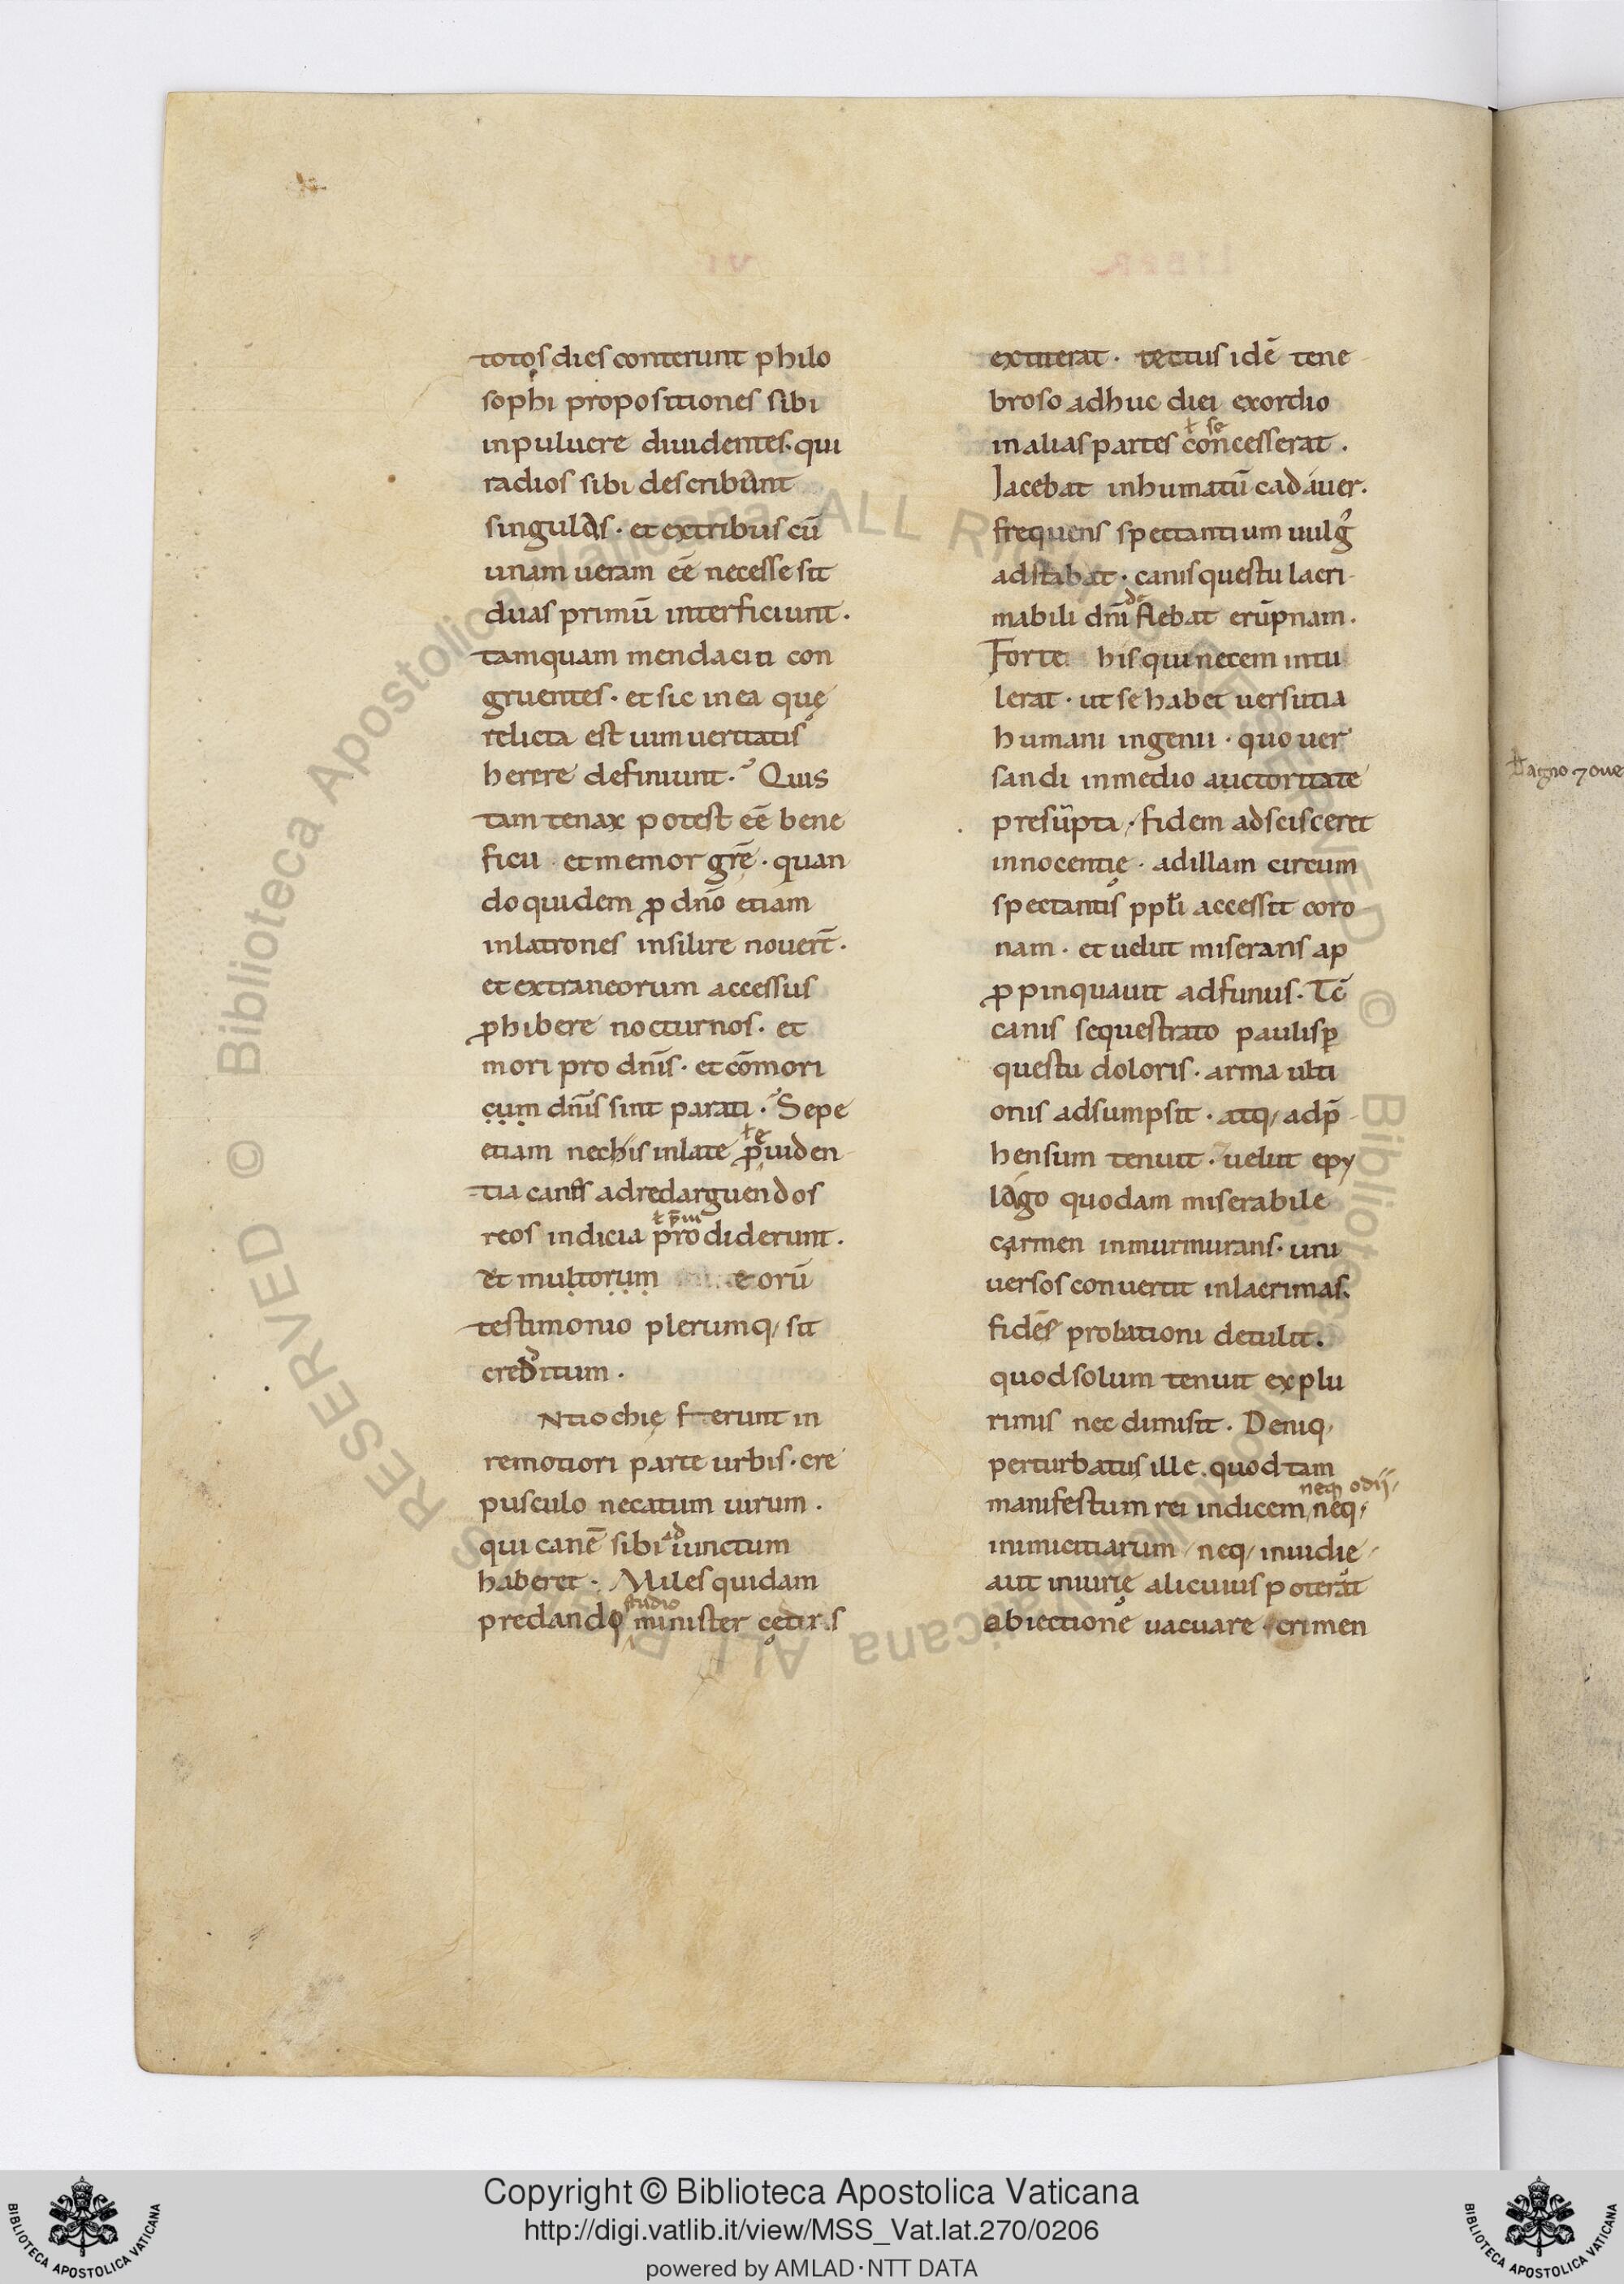 totos dies conterunt philo
sophi propositiones sibi
in puluere diuidentes · qui
radios sibi describunt
singulos · et ex tribus cū
unam ueram eē necesse sit
duas primū interficiunt ·
tamquam mendacio con
gruentes · et sic in ea quę
relicta est uim ueritatis
herere definiunt · Quis
tam tenax potest eē bene
ficii et memor grē · quan
do quidem ꝓ dn̄o etiam
in latrones insilire nouert̄ ·
et extraneorum accessus
ꝓhibere nocturnos · et
mori pro dn̄is · et cōmori
cum dn̄is sint parati · Sepe
etiam necis inlate ꝓuiden
tia canes ad redarguendos
reos indicia prodiderunt ·
et multorum eorū
testimonio plerumq; sit
creditum ·
Ntiochię ferunt in
remotiori parte urbis · cre
pusculo necatum uirum ·
qui canē sibi adiunctum
haberet · Miles quidam
studio
predando minister cędis
extiterat · tectus idē tene
broso adhuc diei exordio
ł se
in alias partes concesserat ·
Iacebat inhumatū cadauer ·
frequens spectantium uulg᾽
adstabat · canis questu lacri
de
mabili dn̄i flebat erūpnam ·
Forte his qui necem intu
lerat · ut se habet uersutia
humani ingenii · quo uer
sandi in medio auctoritate
presūpta · fidem adscisceret
innocentię · ad illam circum
spectantis ppl̄i accessit coro
nam · et uelut miserans ap
ꝓpinquauit ad funus · Tc̄
canis sequestrato paulisꝑ
questu doloris · arma ulti
onis adsumpsit · atq; adp̄
hensum tenuit · uelut epy
logo quodam miserabile
carmen inmurmurans · uni
uersos conuertit in lacrimas ·
fidē probationi detulit ·
quod solum tenuit ex plu
rimis nec dimisit · Deniq;
perturbatus ille quod tam
neq; odij
manifestum rei indicem neq;
inimicitiarum neq; inuidie
aut iniurię alicuius poterat
obiectione uacuare crimen
agno ⁊ oue
Copyright © Biblioteca Apostolica Vaticana
http://digi.vatlib.it/view/MSS_Vat.lat.270/0206
powered by AMLAD·NTT DATA